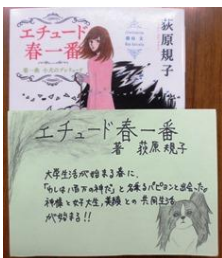 荻原規子
エチュード
春一番
エチュード春一番
著 荻原規子
大学生活が始まる春に、
「わしは八百万の神だ」と名乗るパピヨンと出会った。
神様と女子大生、美綾との共同生活
が始まる!!